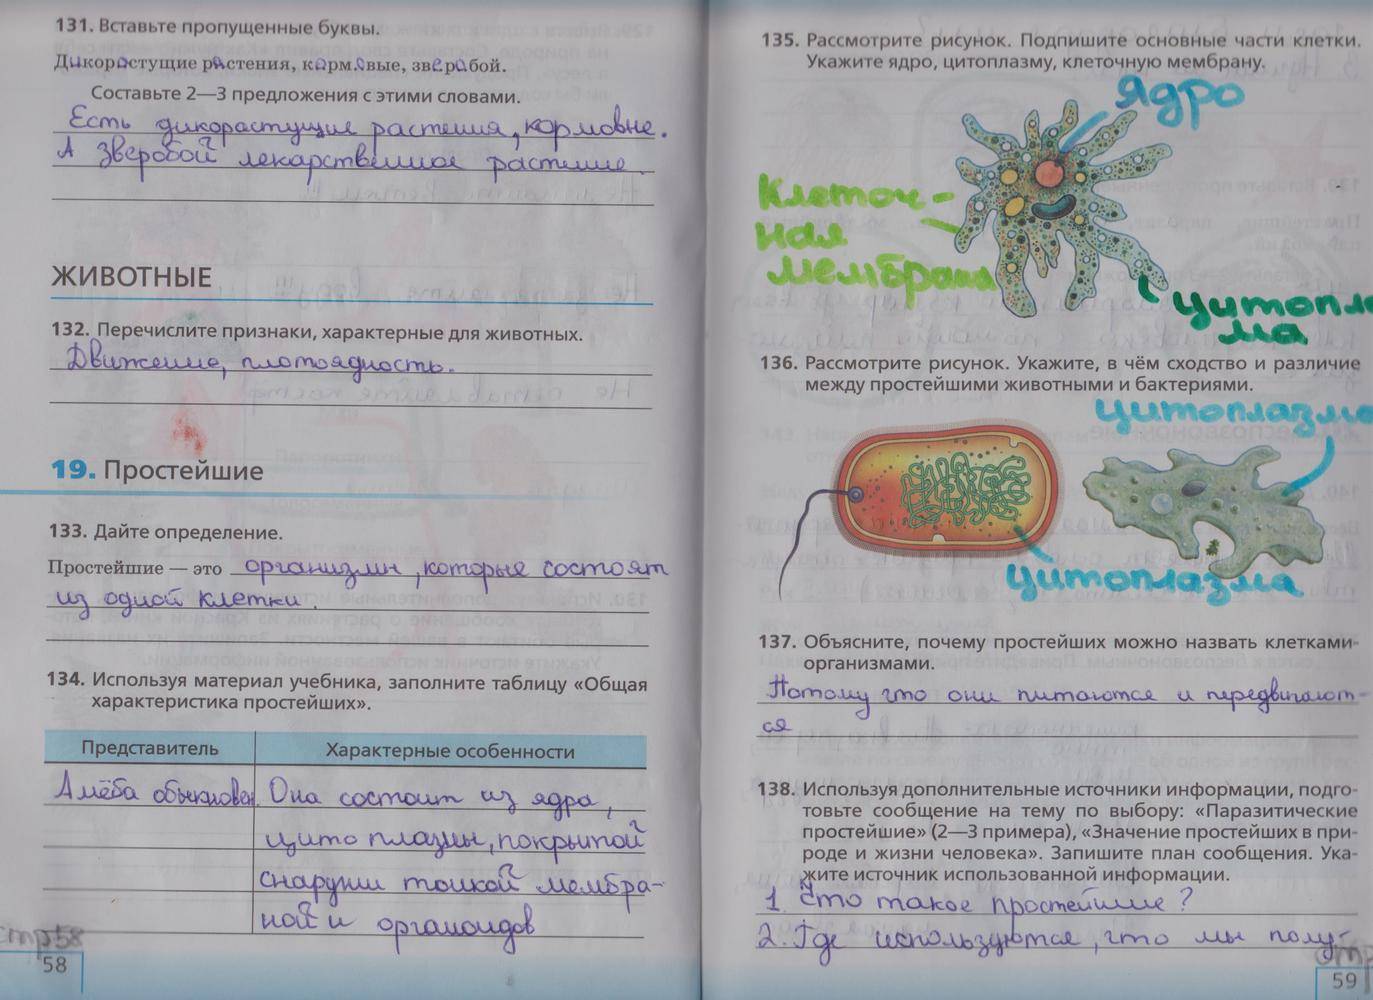 131. Вставьте пропущенные буквы.
Дикорастущие растения, кормовые, зверобой.
Составьте 2—3 предложения с этими словами.
Есть дикорастущие растения, кормовне.
А зверобой лекарственное растение.
ЖИВОТНЫЕ
132. Перечислите признаки, характерные для животных.
Движение, плотоядность.
19. Простейшие
133. Дайте определение.
Простейшие — это организмы, которые состоят
из одной клетки.
134. Используя материал учебника, заполните таблицу «Общая
характеристика простейших».
Представитель Характерные особенности
Амёба обыкновен Она состоит из ядра,
цито плазмы, покрытой
снаружи тонкой мембра-
ной и органоидов
стр58
58
135. Рассмотрите рисунок. Подпишите основные части клетки.
Укажите ядро, цитоплазму, клеточную мембрану.
Ядро
Клеточ-
ная
мембрана
Цитопла
ма
136. Рассмотрите рисунок. Укажите, в чём сходство и различие
между простейшими животными и бактериями.
цитоплазма
цитоплазма
137. Объясните, почему простейших можно назвать клетками-
организмами.
Потому что они питаются и передвигают-
ся
138. Используя дополнительные источники информации, подго-
товьте сообщение на тему по выбору: «Паразитические
простейшие» (2—3 примера), «Значение простейших в при-
роде и жизни человека». Запишите план сообщения. Ука-
жите источник использованной информации.
1. Что такое простейшие?
2. Где используются, что мы полу-
стр
59